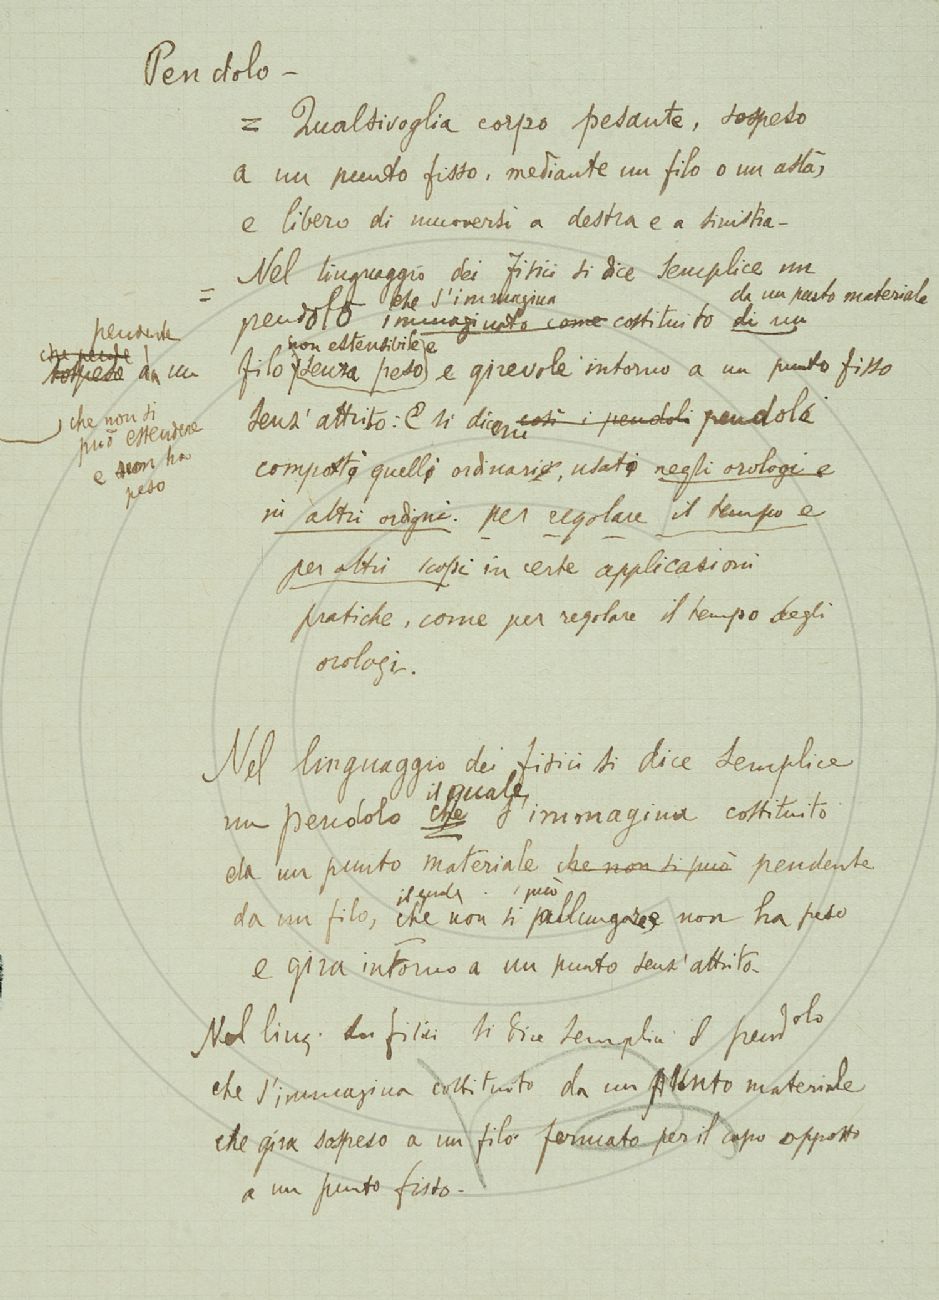 Pendolo -
= Qualsivoglia corpo pesante, sospeso
a un punto fisso, mediante un filo o un asta,
e libero di muoversi a destra e a sinistra -
= Nel linguaggio dei fisici si dice semplice un
che s'immagina da un punto materiale
pendolo immaginato come costituito di un
pendente
che pende
sospeso a un
non estensibile e
filo (senza peso) e girevole intorno a un punto fisso
che non si
può estendere
e non ha
peso
senz' attrito: E si dicon così i pendoli pendoli
composti quelli ordinari, usati negli orologi e
in altri ordigni. per regolare il tempo e
per altri scopi in certe applicazioni
pratiche, come per regolare il tempo degli
orologi.
Nel linguaggio dei fisici si dice semplice
il quale
un pendolo che s'immagina costituito
da un punto materiale che non si può pendente
può
da un filo, che non si allungare e non ha peso
e gira intorno a un punto senz' attrito -
Nel ling. dei fisici si dice semplice il pendolo
che s'immagina costituito da un punto materiale
che gira sospeso a un filo fermato per il capo opposto
a un punto fisso -